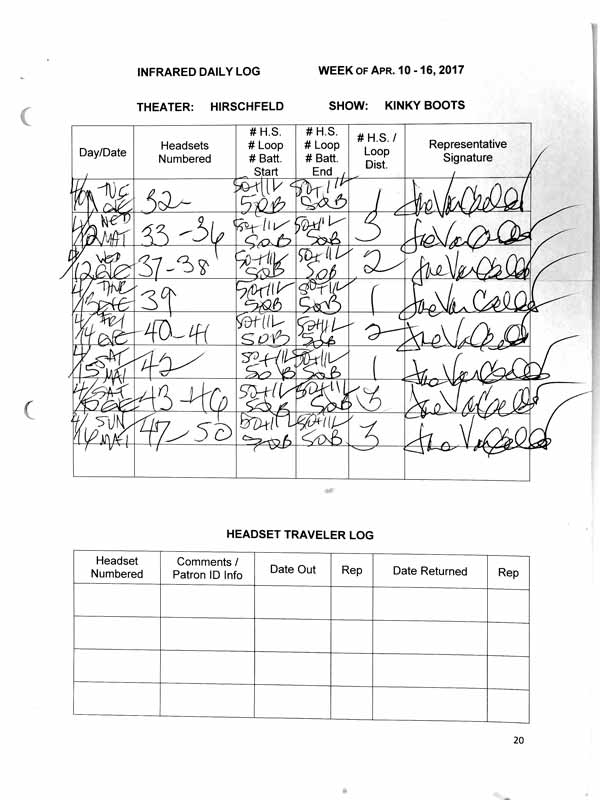 INFRARED DAILY LOG WEEK OF APR. 10 - 16, 2017
THEATER: HIRSCHFELD SHOW: KINKY BOOTS
Day/Date Headsets Numbered # H.S. # Loop # Batt. Start # H.S. # Loop # Batt. End # H.S. / Loop Dist. Representative Signature
TUE EVE 32 50+11L 50B 50+11L 50B 1
4/12 WED MAT 33-36 50+11L 50B 50+11L 50B 3
4/12 WED EVE 37-38 50+11L 50B 50+11L 50B 2
4/13 THUR EVE 39 50+11L 50B 50+11L 50B 1
4/14 FRI EVE 40-41 50+11L 50B 50+11L 50B 2
4/15 SAT MAT 42 50+11L 50B 50+11L 50B 1
4/15 SAT EVE 43-46 50+11L 50B 50+11L 50B 3
4/16 SUN MAT 47-50 50+11L 50B 50+11L 50B 3
HEADSET TRAVELER LOG
Headset Numbered Comments / Patron ID Info Date Out Rep Date Returned Rep
20